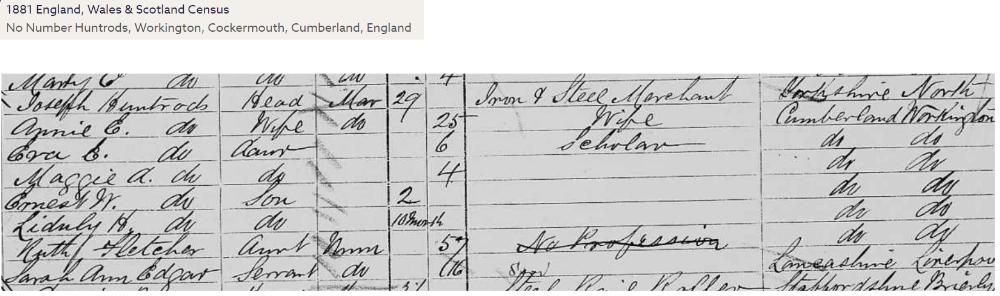 1881 England, Wales & Scotland Census
No Number Huntrods, Workington, Cockermouth, Cumberland, England
Mary E do do do 4
Joseph Huntrods Head Mar 29 Iron & Steel Merchant Yorkshire North
Annie E. do Wife do 25 Wife Cumberland Workington
Eva E. do Daur 6 Scholar do do
Maggie A. do do 4 do do
Ernest W. do Son 2 do do
H. do do 10 Month do do
Ruth Fletcher Aunt Unm 57 No Profession do do
Sarah Ann Edgar Servant do 16 Lancashire Liverpoo
Steel Rail Roller Staffordshire Brierly